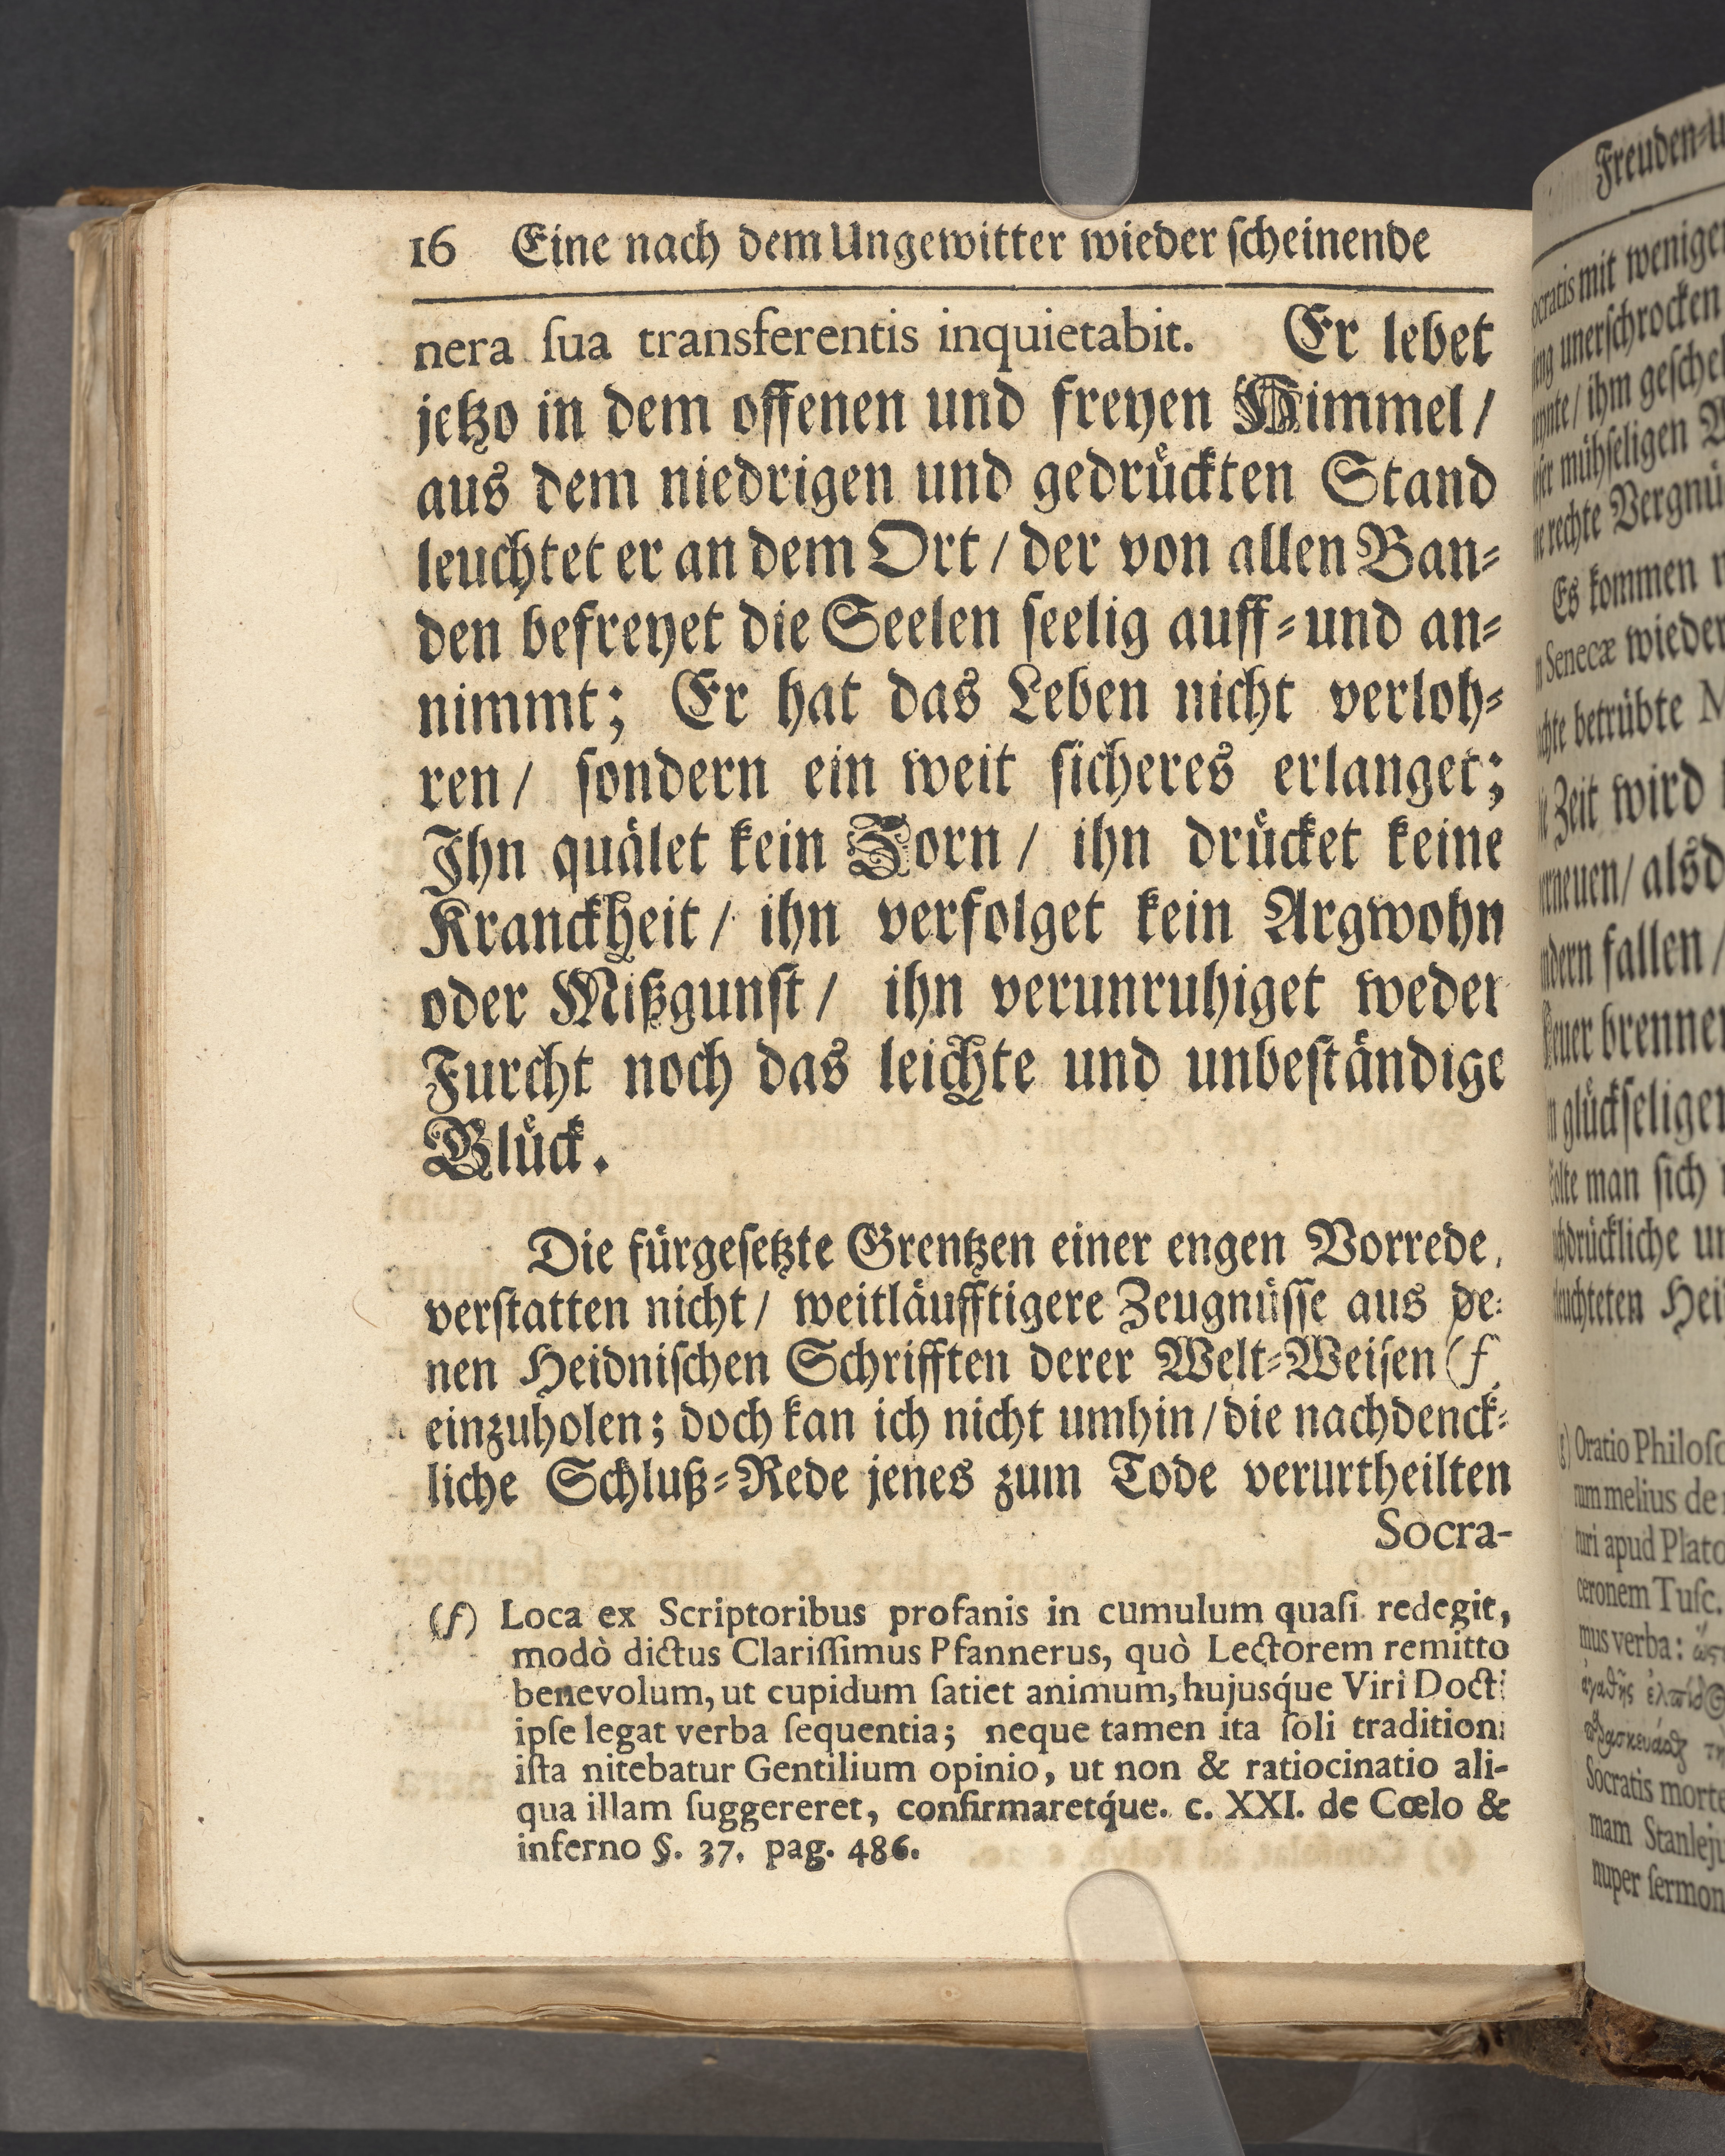 16 Eine nach dem Ungewitter wieder ſcheinende
nera ſua transferentis inquietabit. Er lebet
jetzo in dem offenen und freyen Himmel /
aus dem niedrigen und gedruͤckten Stand
leuchtet er an dem Ort / der von allen Ban⸗
den befreyet die Seelen ſeelig auff⸗und an⸗
nimmt; Er hat das Leben nicht verloh⸗
ren / ſondern ein weit ſicheres erlanget;
Ihn quaͤlet kein Zorn / ihn druͤcket keine
Kranckheit / ihn verfolget kein Argwohn
oder Mißgunſt / ihn verunruhiget weder
Furcht noch das leichte und unbeſtaͤndige
Gluͤck.
Die fuͤrgeſetzte Grentzen einer engen Vorrede,
verſtatten nicht / weitlaͤufftigere Zeugnuͤſſe aus de⸗
nen Heidniſchen Schrifften derer Welt⸗Weiſen (f
einzuholen; doch kan ich nicht umhin / die nachdenck⸗
liche Schluß⸗Rede jenes zum Tode verurtheilten
Socra-
(f) Loca ex Scriptoribus profanis in cumulum quaſi redegit,
modò dictus Clariſſimus Pfannerus, quò Lectorem remitto
benevolum, ut cupidum ſatiet animum, hujusq́ue Viri Docti
ipſe legat verba ſequentia; neque tamen ita ſoli traditioni
iſta nitebatur Gentilium opinio, ut non & ratiocinatio ali-
qua illam ſuggereret, confirmaretq́ue. c. XXI. de Cœlo &
inferno §. 37. pag. 486.
Freuden⸗
mit
unerſchrocken
ihm
muͤhſeligen
rechte
Es kommen
Senecæ wieder
betruͤbte
Zeit wird
fallen /
brennen
man ſich
Oratio
melius de
apud
verba:
Socratis
mam
nuper